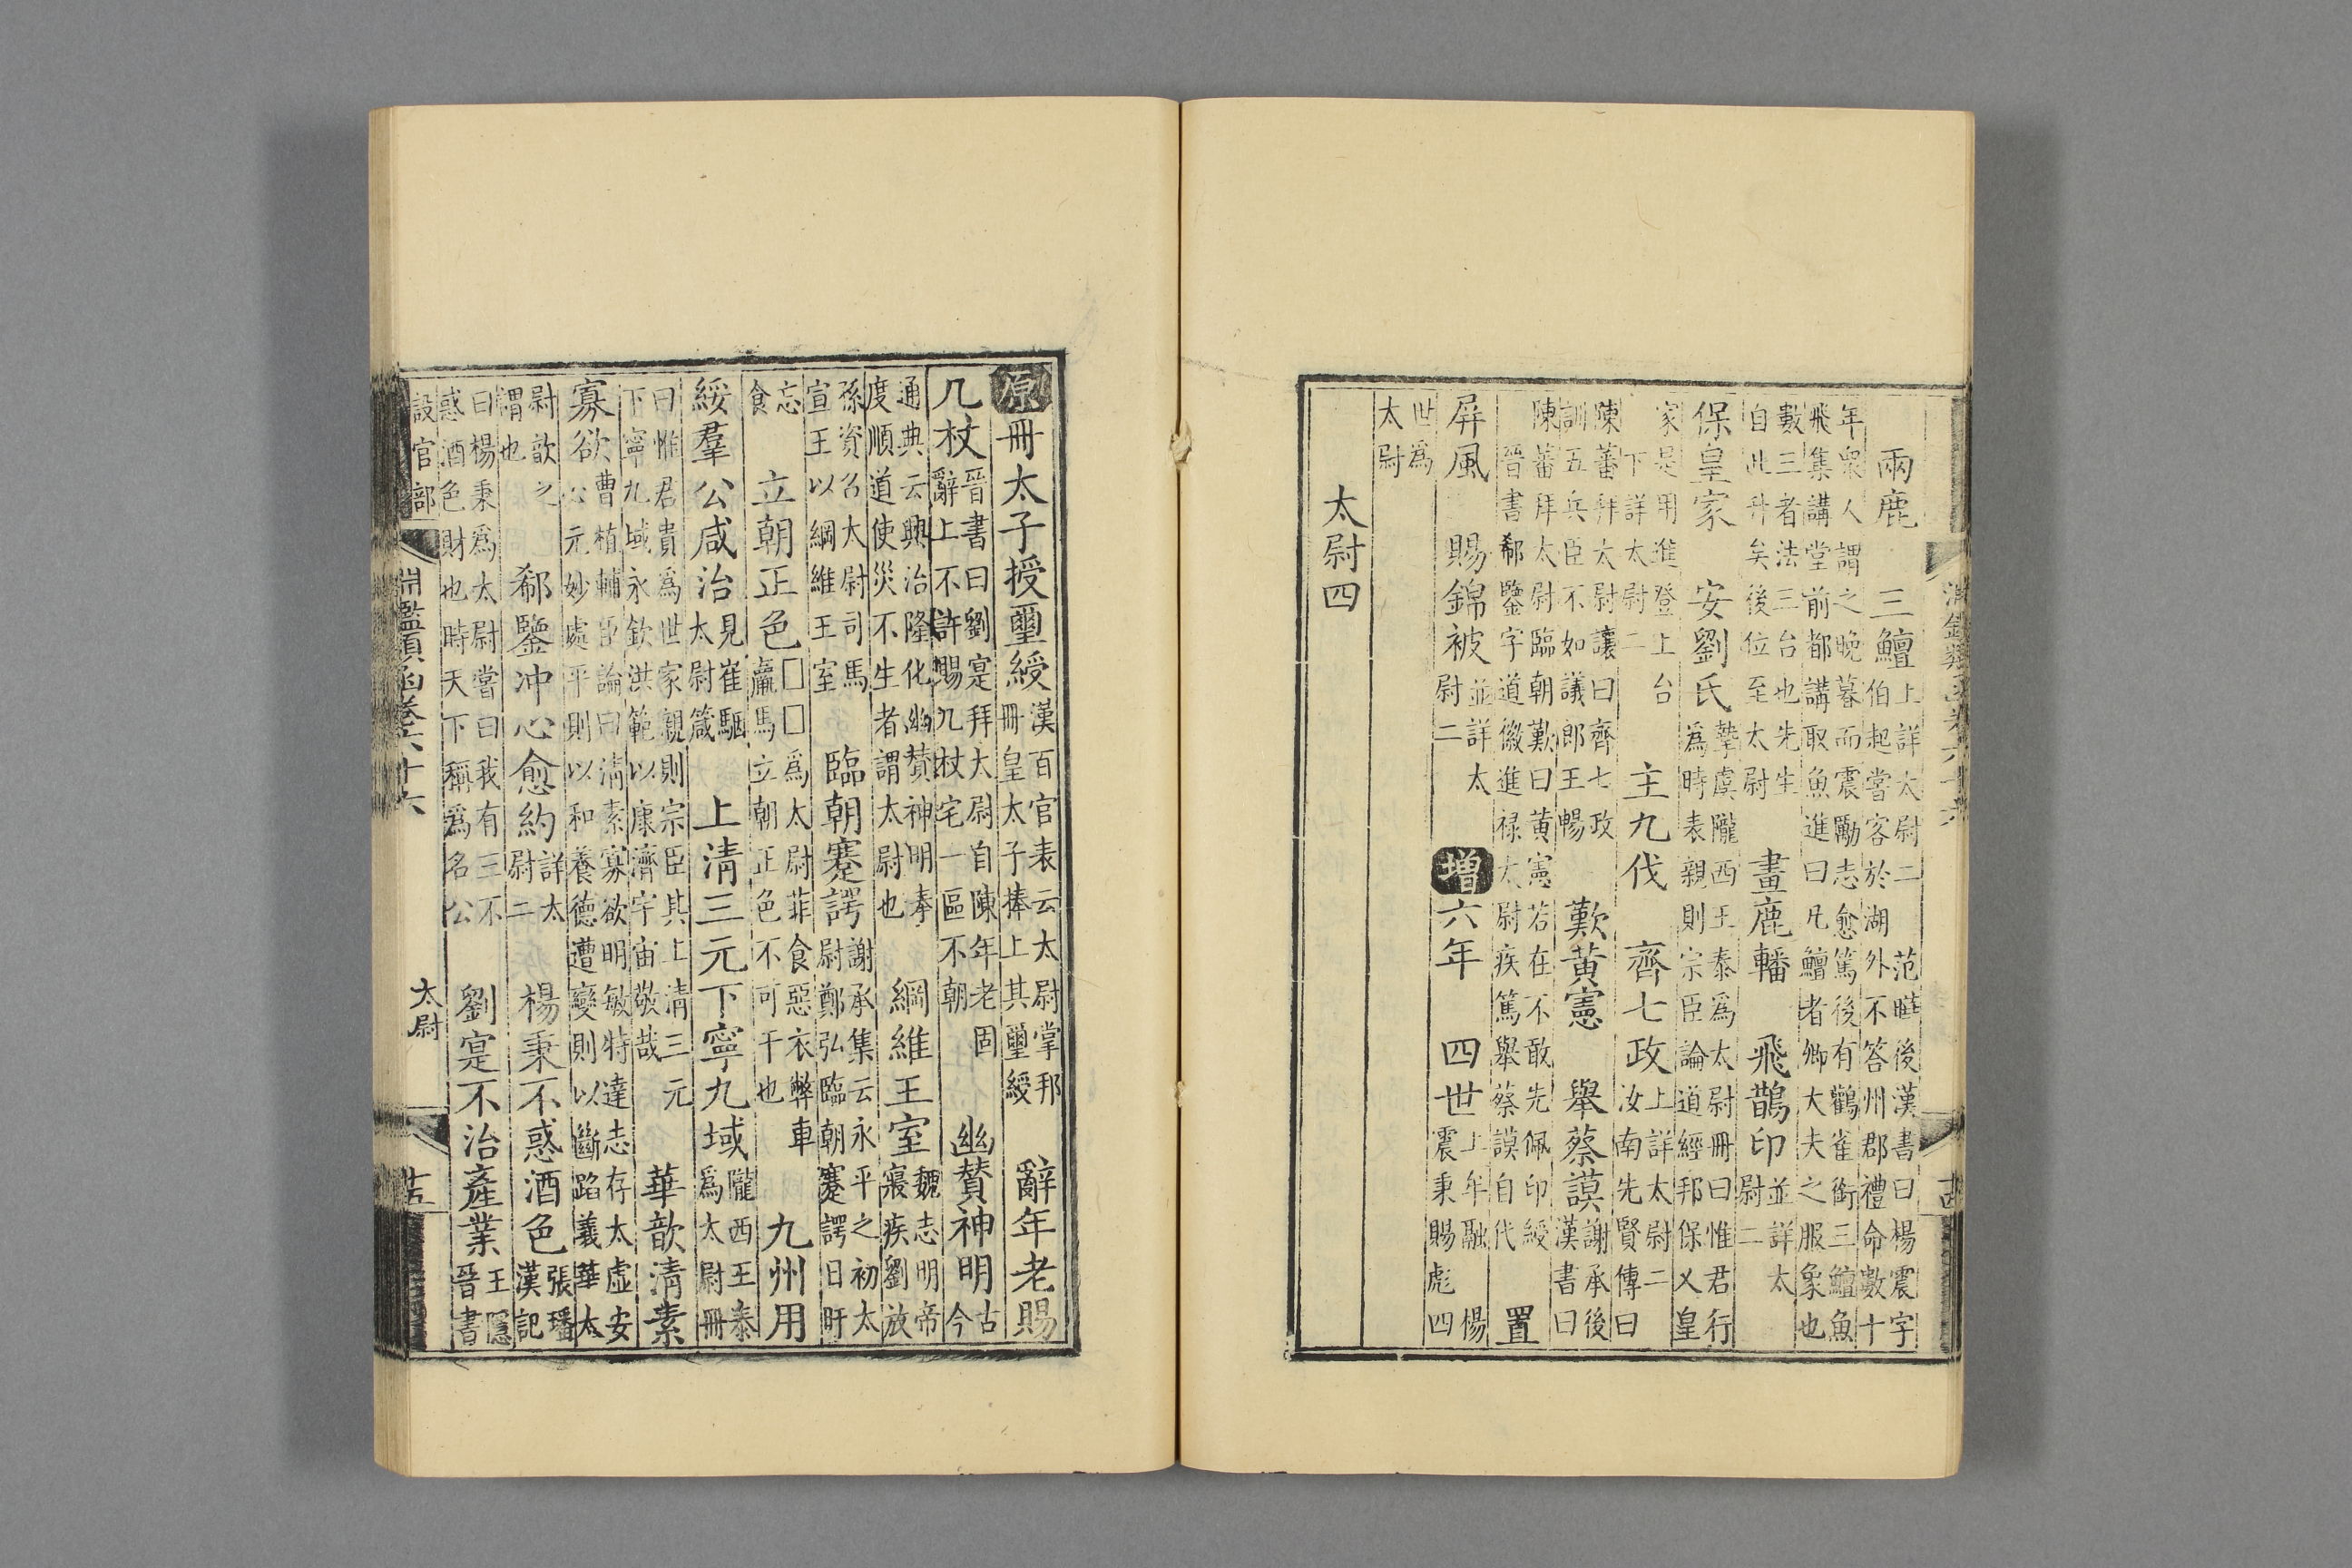 淵鑑類函卷六十六 十四
兩鹿　三鱣上詳太尉二　范曄後漢書曰楊震字伯起嘗客於湖外不答州郡禮命數十
年衆人謂之晚暮而震勵志愈篤後有鸛雀銜三鱣魚飛集講堂前都講取魚進曰凡鱣者卿大夫之服象也
數三者法三台也先生自此升矣後位至太尉　畫鹿轓　飛鵲印並詳太尉二
保皇家　安劉氏摯虞隴西王泰爲太尉冊曰惟君行爲時表親則宗臣論道經邦保乂皇
家是用進登上台下詳太尉二　主九伐　齊七政上詳太尉二汝南先賢傳曰
陳蕃拜太尉讓曰齊七政訓五兵臣不如議郎王暢　歎黃憲　舉蔡謨謝承後漢書曰
陳蕃拜太尉臨朝歎曰黃憲若在不敢先佩印綬晉書郗鑒字道徽進禄大尉疾篤舉蔡謨自代　置
屏風　賜錦被並詳太尉二　增六年　四世上牟融　楊震秉賜彪四
世爲太尉
太尉四
原冊太子授璽綬漢百官表云太尉掌邦冊皇太子捧上其璽綬　辭年老賜
几杖晉書曰劉寔拜太尉自陳年老固辭上不許賜几杖宅一區不朝　幽贊神明古今
通典云興治隆化幽贊神明奉度順道使災不生者謂太尉也　綱維王室魏志明帝寢疾劉放
孫資召大尉司馬宣王以綱維王室　臨朝蹇諤謝承集云永平之初太尉鄭弘臨朝蹇諤日旰
忘食　立朝正色□□爲太尉菲食惡衣弊車羸馬立朝正色不可干也　九州用
綏羣公咸治見崔駰太尉箴　上清三元下寧九域隴西王泰爲太尉冊
曰惟君貴爲世家親則宗臣其上清三元下寧九域永欽洪範以康濟宇宙敬哉　華歆清素
寡欲曹植輔臣論曰清素寡欲明敏特達志存太虛安心元妙處平則以和養德遭變則以斷蹈義華太
尉歆之謂也　郗鑒冲心愈約詳太尉二　楊秉不惑酒色張璠漢記
曰楊秉爲太尉嘗曰我有三不惑酒色財也時天下稱爲名公　劉寔不治產業王隱晉書
設官部 淵鑑類函卷六十六 太尉 十五